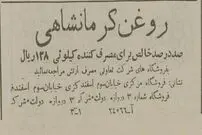 روغن کرمانشاهی
صددرصد خالص برای مصرف کننده کیلوئی ۱۳۸ ریال
بفروشگاه های شرکت تعاونی مصرف ارتش مراجعه نمائید
نشانی: فروشگاه مرکزی خیابان سوم اسفند
فروشگاه شماره ۳ دروازه دولت
۳-۱